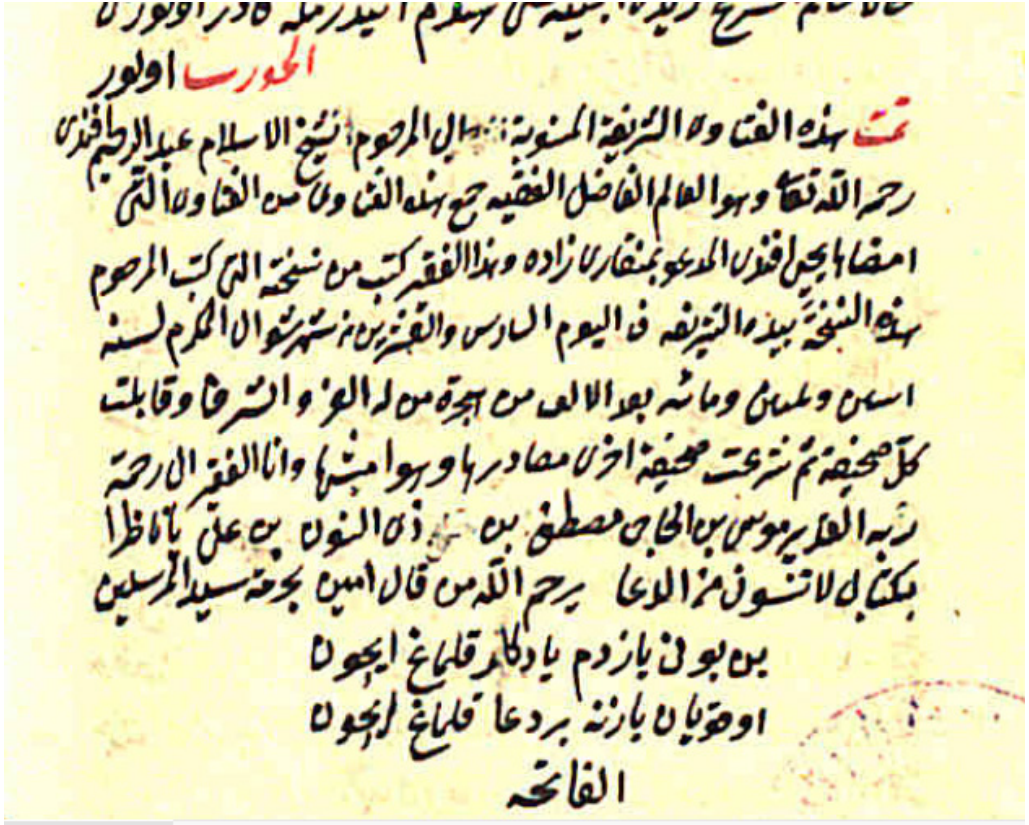 سلام
الجواب اولور
تمت هذه الفتاوى الشريفة المنسوبة الى المرحوم شيخ الاسلام عبد الرحيم افندى
رحمه الله تعالى وهو العالم الفاضل الفقيه جمع هذه الفتاوى من الفتاوى التى
امضاها يحيى افندى المدعو بمنقارى زاده وهذا الفقير كتب من نسخته التى كتب المرحوم
هذه النسخة بيده الشريفه فى اليوم السادس والعشرين من شهر شوال المكرم لسنه
اثنين وثلثين ومائه بعد الالف من هجرة من له العز والشرف وقابلت
كل صحيفة ثم شرعت صحيفة اخرى مصادرها وهوامشها وانا الفقير الى رحمة
ربه القدير موسى بن الحاجى مصطفى بن ذى النون بن على يا ناظرا
بكتابى لا تنسون من الدعا يرحم الله من قال امين بحرمة سيد المرسلين
بن بونى يازدم يادكار قلماغ ايچون
اوقويان يازنه بر دعا قلماغ ايچون
الفاتحه